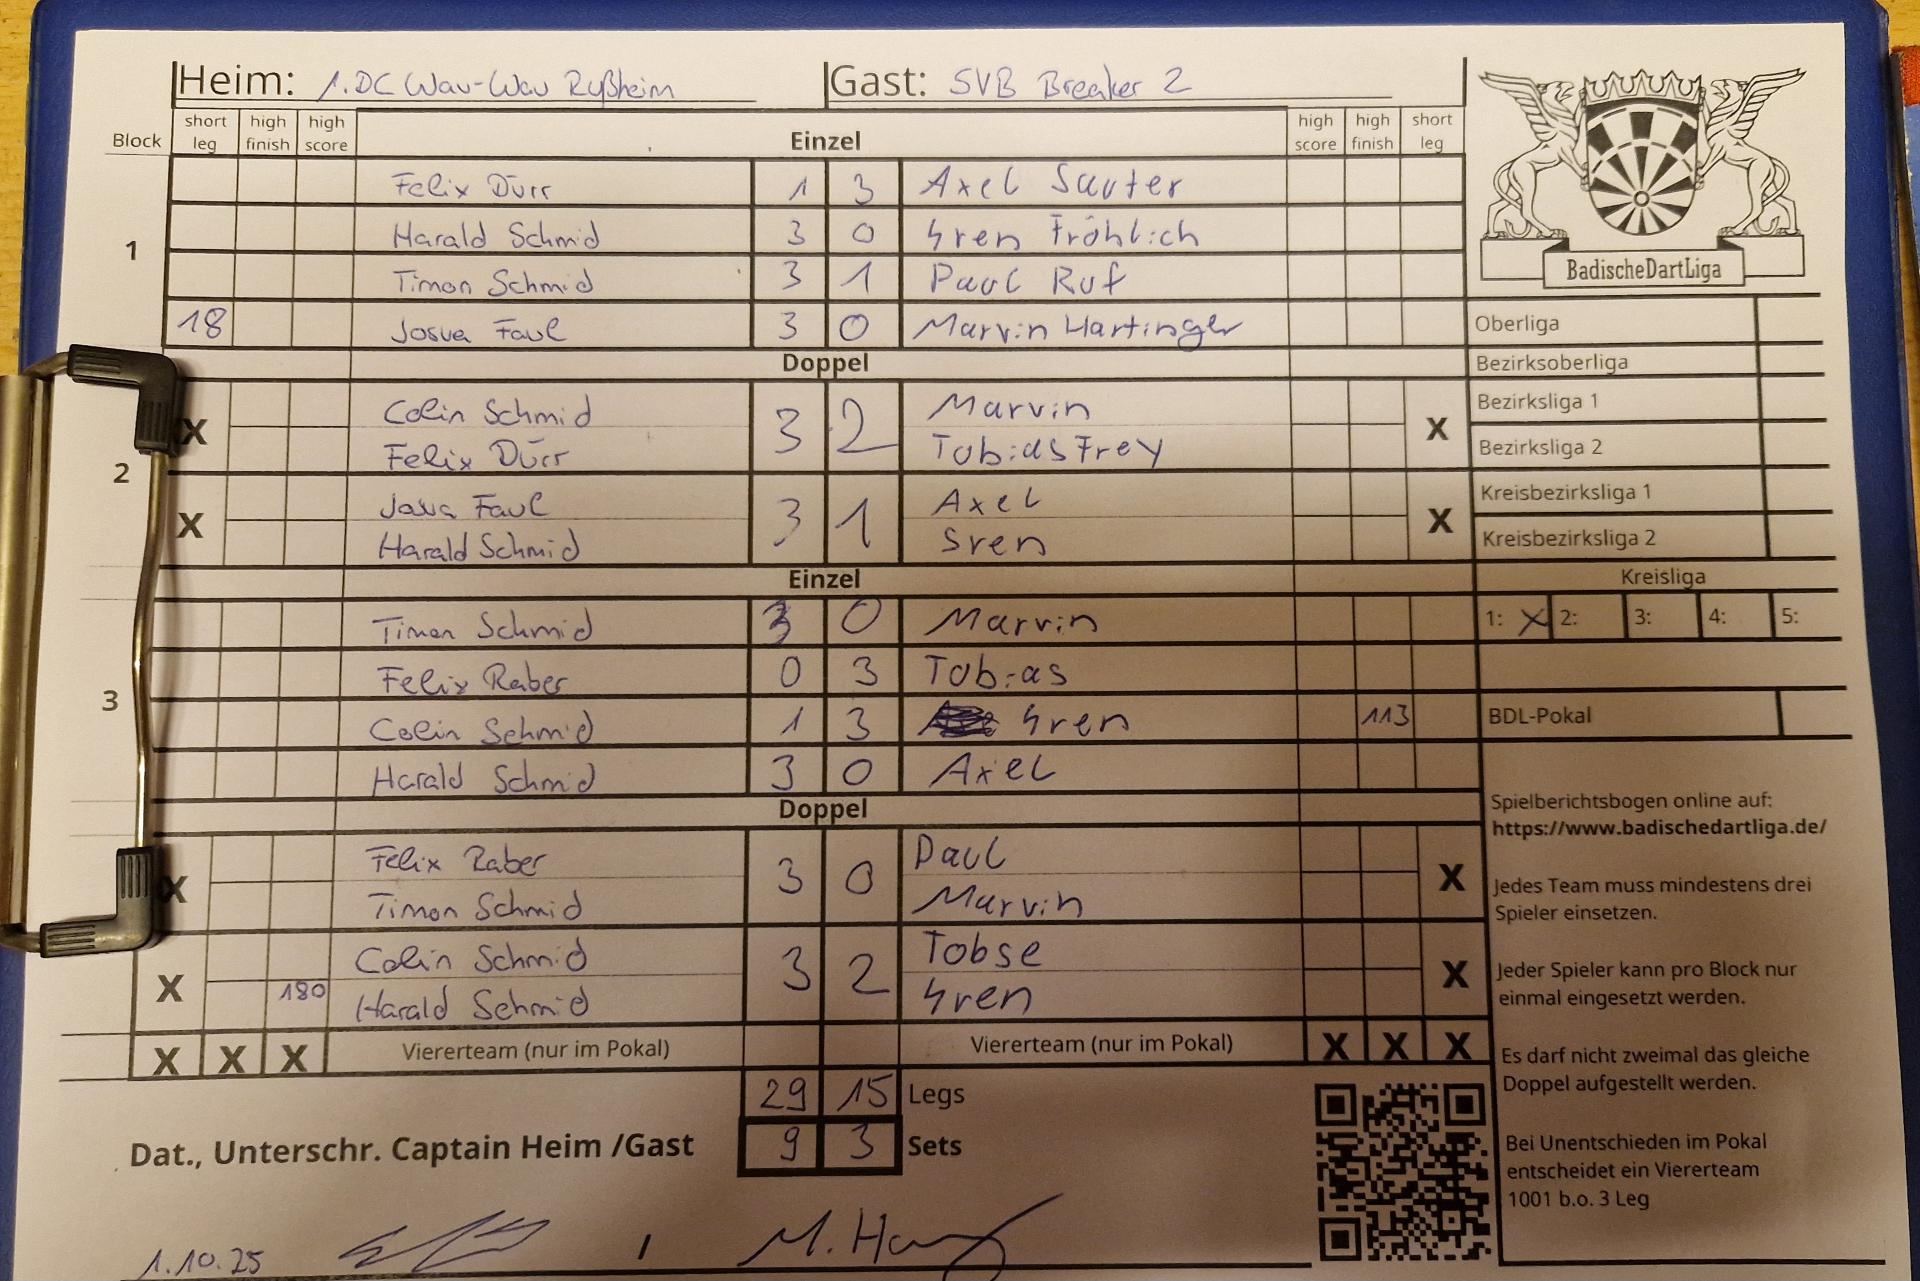 Heim: 1. DC Wau-Wau Rußheim Gast: SVB Breaker 2
Block short leg high finish high score Einzel high score high finish short leg
1
Felix Dürr 1 3 Axel Sauter
Harald Schmid 3 0 Sren Fröhlich
Timon Schmid 3 1 Paul Ruf
18 Josua Faul 3 0 Marvin Hartinger
Doppel
2
X Colin Schmid 3 2 Marvin X
Felix Dürr Tobias Frey
X Josua Faul 3 1 Axel X
Harald Schmid Sren
Einzel
3
Timon Schmid 3 0 Marvin
Felix Raber 0 3 Tobias
Colin Schmid 1 3 Sren 113
Harald Schmid 3 0 Axel
Doppel
X Felix Raber 3 0 Paul X
Timon Schmid Marvin
X Colin Schmid 3 2 Tobse X
180 Harald Schmid Sren
X X X Viererteam (nur im Pokal) Viererteam (nur im Pokal) X X X
29 15 Legs
9 3 Sets
Dat., Unterschr. Captain Heim /Gast
1.10.25 /
BadischeDartLiga
Oberliga
Bezirksoberliga
Bezirksliga 1
Bezirksliga 2
Kreisbezirksliga 1
Kreisbezirksliga 2
Kreisliga
1: X 2: 3: 4: 5:
BDL-Pokal
Spielberichtsbogen online auf:
https://www.badischedartliga.de/
Jedes Team muss mindestens drei
Spieler einsetzen.
Jeder Spieler kann pro Block nur
einmal eingesetzt werden.
Es darf nicht zweimal das gleiche
Doppel aufgestellt werden.
Bei Unentschieden im Pokal
entscheidet ein Viererteam
1001 b.o. 3 Leg